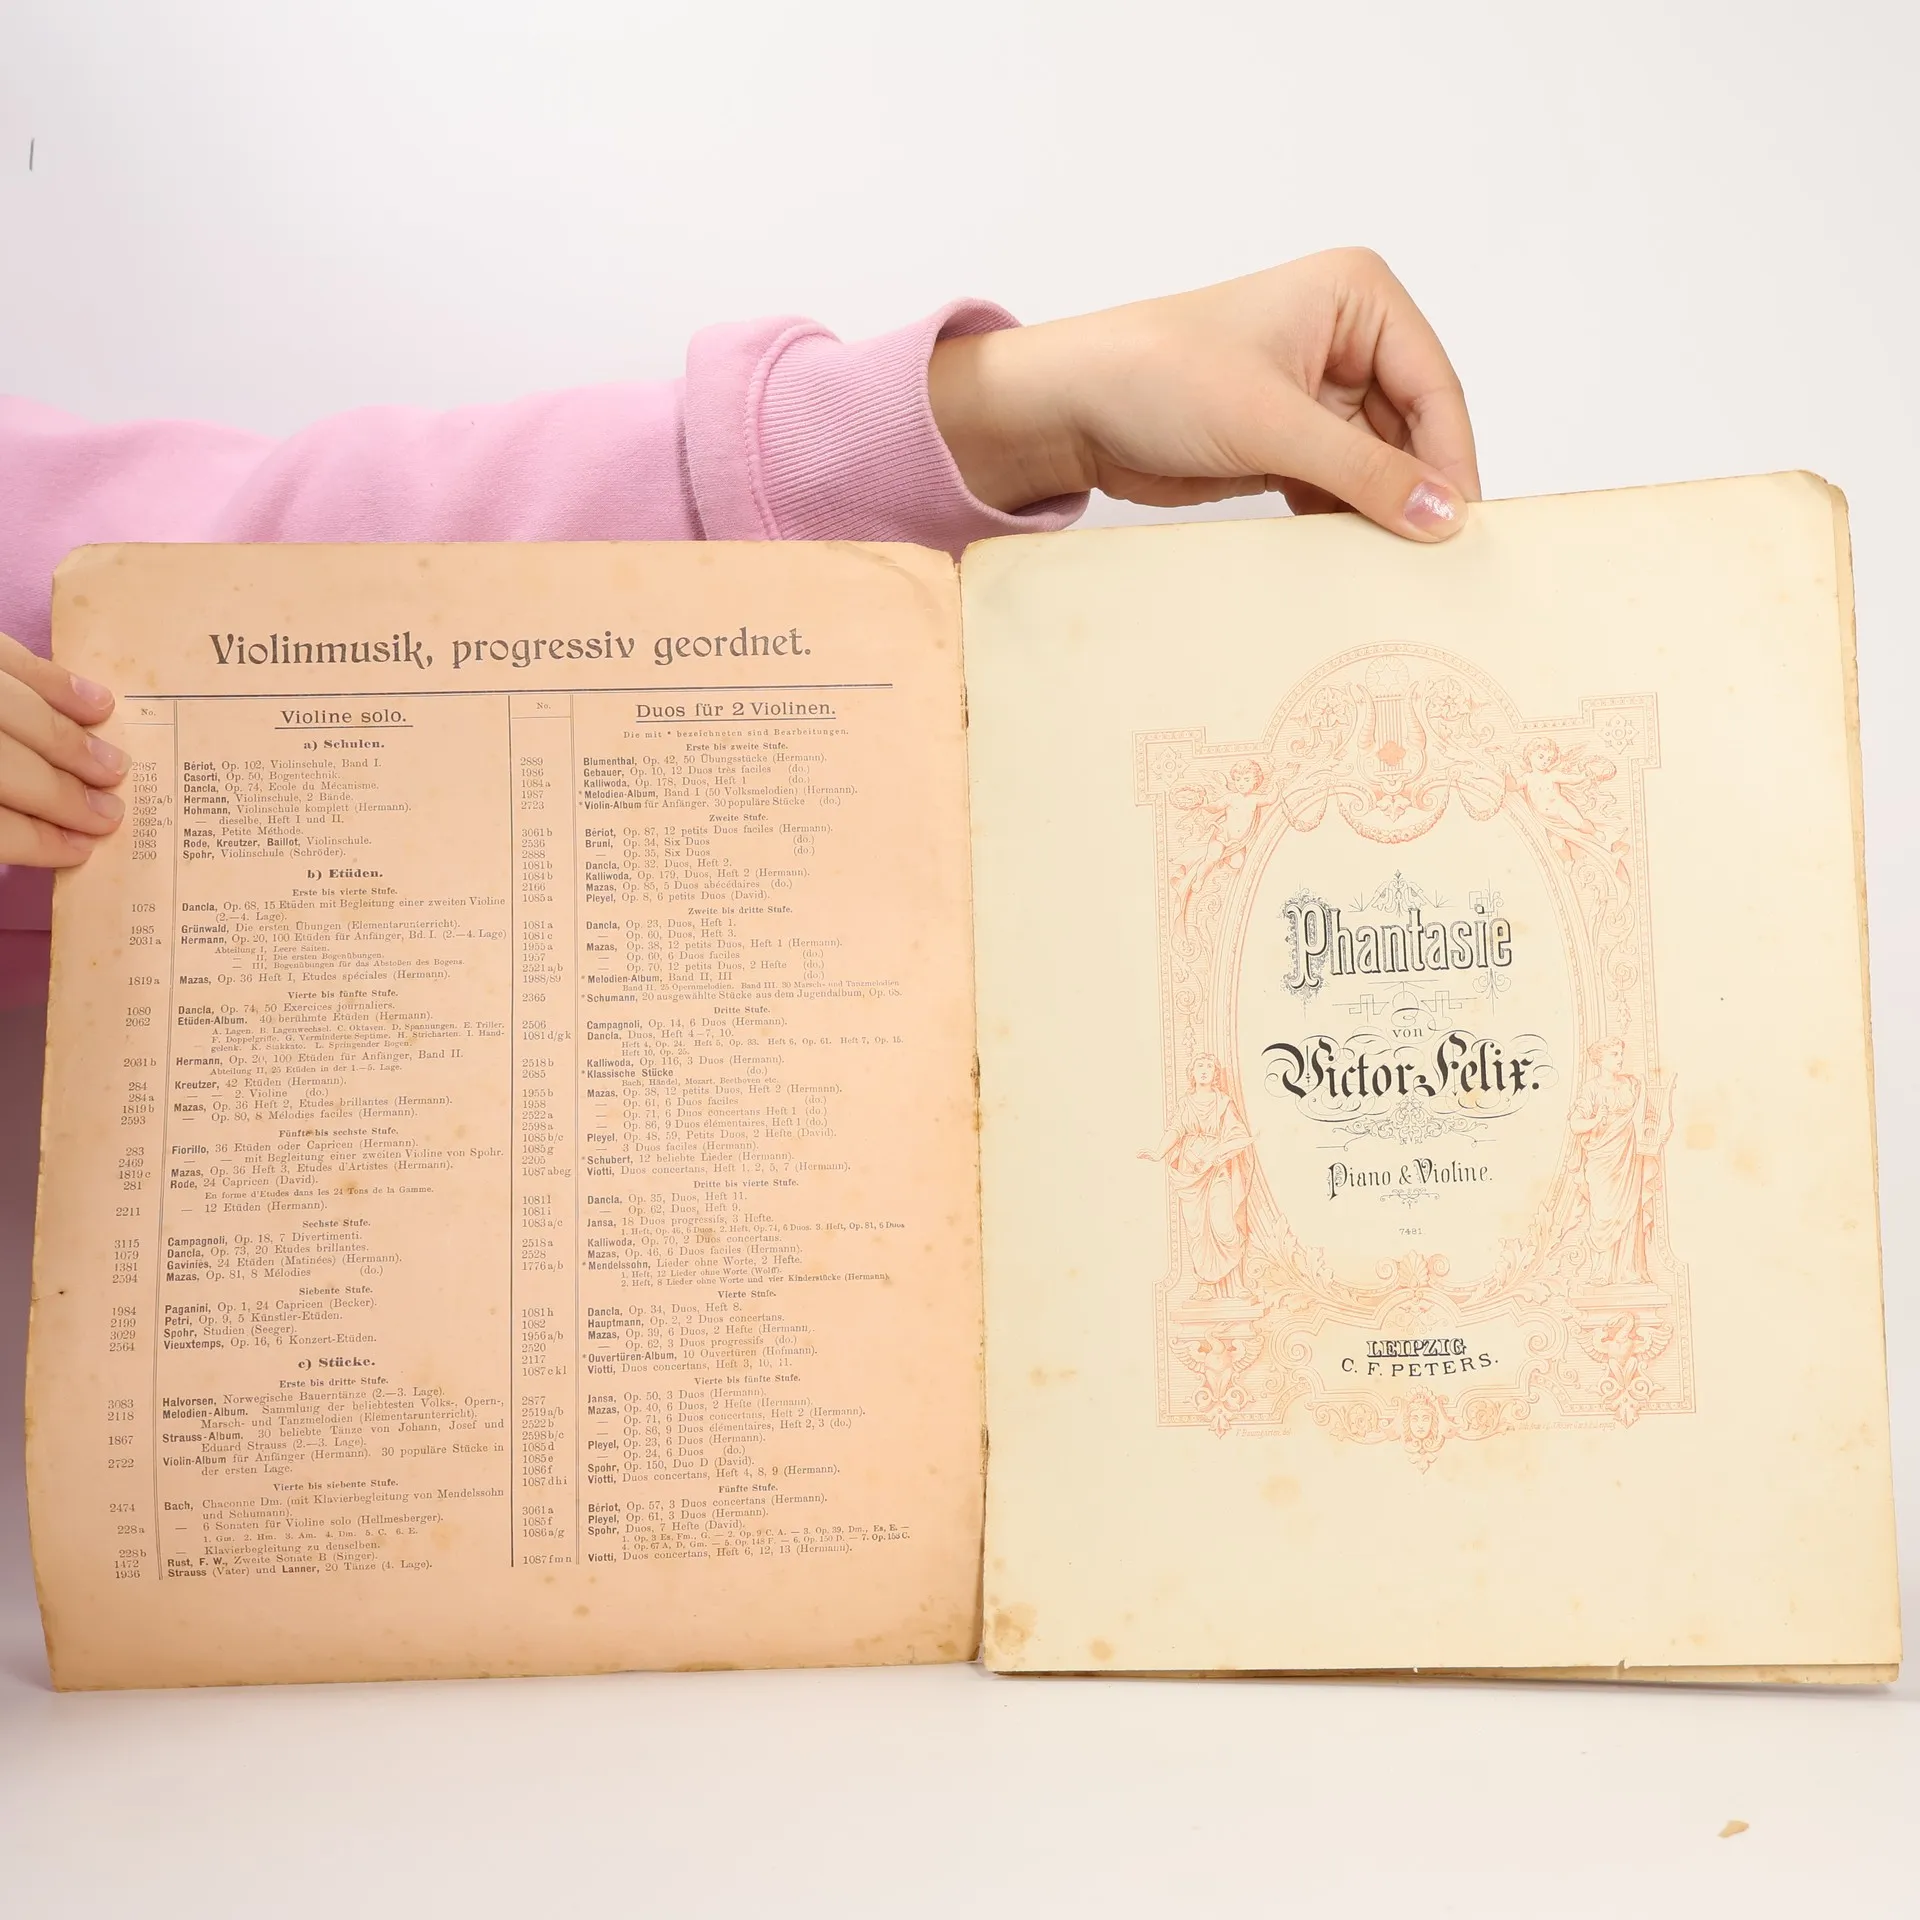 Violinmusik, progressiv geordnet.
No.
Violine solo.
a) Schulen.
2987 Bériot, Op. 102, Violinschule, Band I.
2516 Casorti, Op. 50, Bogentechnik.
1080 Dancla, Op. 74, Ecole du Mécanisme.
1897a/b Hermann, Violinschule, 2 Bände.
2692 Hohmann, Violinschule komplett (Hermann).
2692a/b — dieselbe, Heft I und II.
2640 Mazas, Petite Méthode.
1983 Rode, Kreutzer, Baillot, Violinschule.
2500 Spohr, Violinschule (Schröder).
b) Etüden.
Erste bis vierte Stufe.
1078 Dancla, Op. 68, 15 Etüden mit Begleitung einer zweiten Violine
(2.—4. Lage).
1985 Grünwald, Die ersten Übungen (Elementarunterricht).
2031a Hermann, Op. 20, 100 Etüden für Anfänger, Bd. I. (2.—4. Lage)
Abteilung I, Leere Saiten.
— II, Die ersten Bogenübungen.
— III, Bogenübungen für das Abstoßen des Bogens.
1819a Mazas, Op. 36 Heft I, Etudes spéciales (Hermann).
Vierte bis fünfte Stufe.
1080 Dancla, Op. 74, 50 Exercices journaliers.
2062 Etüden-Album. 40 berühmte Etüden (Hermann).
A. Lagen. B. Lagenwechsel. C. Oktaven. D. Spannungen. E. Triller.
F. Doppelgriffe. G. Verminderte Septime. H. Stricharten. I. Hand-
gelenk. K. Stakkato. L. Springender Bogen.
2031b Hermann, Op. 20, 100 Etüden für Anfänger, Band II.
Abteilung II, 25 Etüden in der 1.—5. Lage.
284 Kreutzer, 42 Etüden (Hermann).
284a — — 2. Violine (do.)
1819b Mazas, Op. 36 Heft 2, Etudes brillantes (Hermann).
2593 — Op. 80, 8 Mélodies faciles (Hermann).
Fünfte bis sechste Stufe.
283 Fiorillo, 36 Etüden oder Capricen (Hermann).
2469 — — mit Begleitung einer zweiten Violine von Spohr.
1819c Mazas, Op. 36 Heft 3, Etudes d'Artistes (Hermann).
281 Rode, 24 Capricen (David).
En forme d'Etudes dans les 24 Tons de la Gamme.
2211 — 12 Etüden (Hermann).
Sechste Stufe.
3115 Campagnoli, Op. 18, 7 Divertimenti.
1079 Dancla, Op. 73, 20 Etudes brillantes.
1381 Gaviniès, 24 Etüden (Matinées) (Hermann).
2594 Mazas, Op. 81, 8 Mélodies (do.)
Siebente Stufe.
1984 Paganini, Op. 1, 24 Capricen (Becker).
2199 Petri, Op. 9, 5 Künstler-Etüden.
3029 Spohr, Studien (Seeger).
2564 Vieuxtemps, Op. 16, 6 Konzert-Etüden.
c) Stücke.
Erste bis dritte Stufe.
3083 Halvorsen, Norwegische Bauerntänze (2.—3. Lage).
2118 Melodien-Album. Sammlung der beliebtesten Volks-, Opern-,
Marsch- und Tanzmelodien (Elementarunterricht).
1867 Strauss-Album. 30 beliebte Tänze von Johann, Josef und
Eduard Strauss (2.—3. Lage).
2722 Violin-Album für Anfänger (Hermann). 30 populäre Stücke in
der ersten Lage.
Vierte bis siebente Stufe.
2474 Bach, Chaconne Dm. (mit Klavierbegleitung von Mendelssohn
und Schumann).
228a — 6 Sonaten für Violine solo (Hellmesberger).
1. Gm. 2. Hm. 3. Am. 4. Dm. 5. C. 6. E.
228b — Klavierbegleitung zu denselben.
1472 Rust, F. W., Zweite Sonate B (Singer).
1936 Strauss (Vater) und Lanner, 20 Tänze (4. Lage).
No.
Duos für 2 Violinen.
Die mit * bezeichneten sind Bearbeitungen.
Erste bis zweite Stufe.
2889 Blumenthal, Op. 42, 50 Übungsstücke (Hermann).
1986 Gebauer, Op. 10, 12 Duos très faciles (do.)
1084a Kalliwoda, Op. 178, Duos, Heft 1
1987 *Melodien-Album, Band I (50 Volksmelodien) (Hermann).
2723 *Violin-Album für Anfänger. 30 populäre Stücke (do.)
Zweite Stufe.
3061b Bériot, Op. 87, 12 petits Duos faciles (Hermann).
2536 Bruni, Op. 34, Six Duos (do.)
2888 — Op. 35, Six Duos (do.)
1081b Dancla, Op. 32, Duos, Heft 2.
1084b Kalliwoda, Op. 179, Duos, Heft 2 (Hermann).
2166 Mazas, Op. 85, 5 Duos abécédaires (do.)
1085a Pleyel, Op. 8, 6 petits Duos (David).
Zweite bis dritte Stufe.
1081a Dancla, Op. 23, Duos, Heft 1.
1081c — Op. 60, Duos, Heft 3.
1955a Mazas, Op. 38, 12 petits Duos, Heft 1 (Hermann).
1957 — Op. 60, 6 Duos faciles (do.)
2521a/b — Op. 70, 12 petits Duos, 2 Hefte (do.)
1988/89 *Melodien-Album, Band II, III (do.)
Band II. 25 Opernmelodien. Band III. 30 Marsch- und Tanzmelodien
2365 *Schumann, 20 ausgewählte Stücke aus dem Jugendalbum, Op. 68.
Dritte Stufe.
2506 Campagnoli, Op. 14, 6 Duos (Hermann).
1081d/gk Dancla, Duos, Heft 4—7, 10.
Heft 4, Op. 24. Heft 5, Op. 33. Heft 6, Op. 61. Heft 7, Op. 15.
Heft 10, Op. 25.
2518b Kalliwoda, Op. 116, 3 Duos (Hermann).
2685 *Klassische Stücke (do.)
Bach, Händel, Mozart, Beethoven etc.
1955b Mazas, Op. 38, 12 petits Duos, Heft 2 (Hermann).
1958 — Op. 61, 6 Duos faciles (do.)
2522a — Op. 71, 6 Duos concertans Heft 1 (do.)
2598a — Op. 86, 9 Duos élémentaires, Heft 1 (do.)
1085b/c Pleyel, Op. 48, 59, Petits Duos, 2 Hefte (David).
1085g — 3 Duos faciles (Hermann).
2205 *Schubert, 12 beliebte Lieder (Hermann).
1087abeg Viotti, Duos concertans, Heft 1, 2, 5, 7 (Hermann).
Dritte bis vierte Stufe.
1081l Dancla, Op. 35, Duos, Heft 11.
1081i — Op. 62, Duos, Heft 9.
1083a/c Jansa, 18 Duos progressifs, 3 Hefte.
1. Heft, Op. 46, 6 Duos. 2. Heft, Op. 74, 6 Duos. 3. Heft, Op. 81, 6 Duos
2518a Kalliwoda, Op. 70, 2 Duos concertans.
2528 Mazas, Op. 46, 6 Duos faciles (Hermann).
1776a/b *Mendelssohn, Lieder ohne Worte, 2 Hefte.
1. Heft, 12 Lieder ohne Worte (Wolff).
2. Heft, 8 Lieder ohne Worte und vier Kinderstücke (Hermann).
Vierte Stufe.
1081h Dancla, Op. 34, Duos, Heft 8.
1082 Hauptmann, Op. 2, 2 Duos concertans.
1956a/b Mazas, Op. 39, 6 Duos, 2 Hefte (Hermann).
2520 — Op. 62, 3 Duos progressifs (do.)
2117 *Ouvertüren-Album, 10 Ouvertüren (Hofmann).
1087ckl Viotti, Duos concertans, Heft 3, 10, 11.
Vierte bis fünfte Stufe.
2877 Jansa, Op. 50, 3 Duos (Hermann).
2519a/b Mazas, Op. 40, 6 Duos, 2 Hefte (Hermann).
2522b — Op. 71, 6 Duos concertans, Heft 2 (Hermann).
2598b/c — Op. 86, 9 Duos élémentaires, Heft 2, 3 (do.)
1085d Pleyel, Op. 23, 6 Duos (Hermann).
1085e — Op. 24, 6 Duos (do.)
1086f Spohr, Op. 150, Duo D (David).
1087dhi Viotti, Duos concertans, Heft 4, 8, 9 (Hermann).
Fünfte Stufe.
3061a Bériot, Op. 57, 3 Duos concertans (Hermann).
1085f Pleyel, Op. 61, 3 Duos (Hermann).
1086a/g Spohr, Duos, 7 Hefte (David).
1. Op. 3 Es, Fm., G. — 2. Op. 9 C. A. — 3. Op. 39, Dm., Es, E. —
4. Op. 67 A, D, Gm. — 5. Op. 148 F. — 6. Op. 150 D. — 7. Op. 153 C.
1087fmn Viotti, Duos concertans, Heft 6, 12, 13 (Hermann).
Phantasie
von
Victor Felix.
Piano & Violine.
7481.
LEIPZIG
C. F. PETERS.